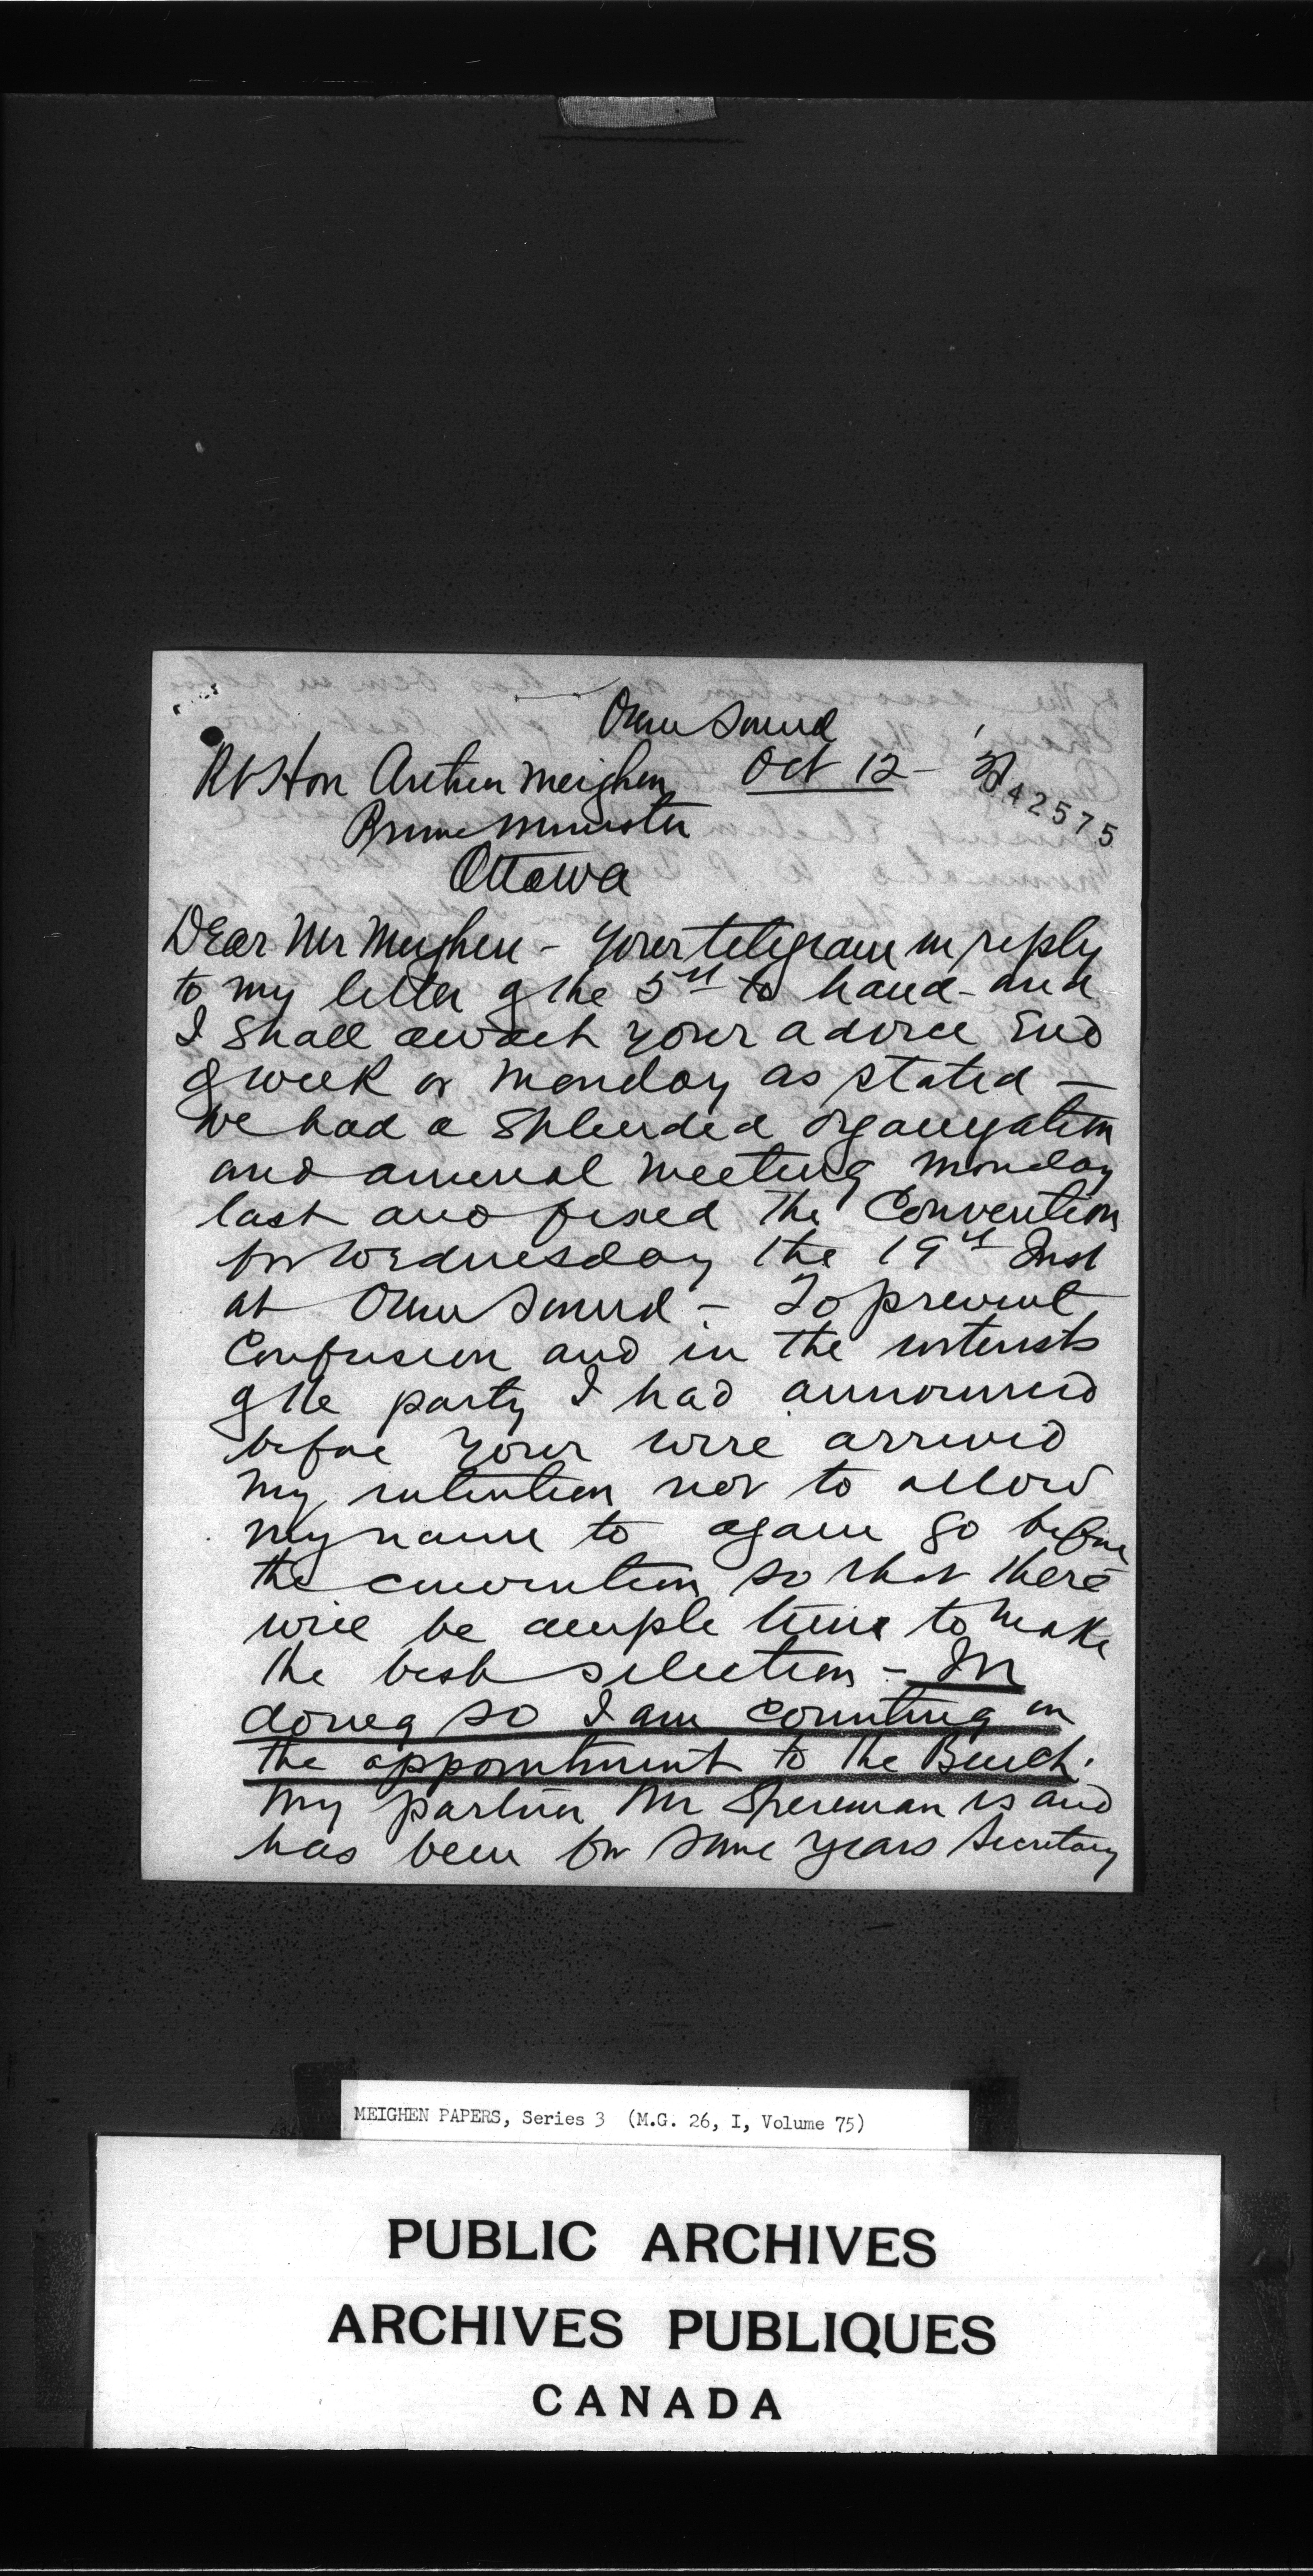 Owen Sound
Oct 12 - '21
042575
Rt Hon Arthur Meighen
Prime Minister
Ottawa
Dear Mr Meighen - your telegram in reply
to my letter of the 5th to hand - and
I shall await your advice End
of week or Monday as stated -
We had a splendid organization
and annual meeting Monday
last and fixed the Convention
for Wednesday the 19th Inst
at Owen Sound - To prevent
confusion and in the interests
of the party I had announced
before your wire arrived
my intention not to allow
my name to again go before
the convention so that there
will be ample time to make
the best selection - In
doing so I am counting on
the appointment to the Bench.
My partner Mr Spereman is and
has been for some years Secretary
MEIGHEN PAPERS, Series 3 (M.G. 26, I, Volume 75)
PUBLIC ARCHIVES
ARCHIVES PUBLIQUES
CANADA